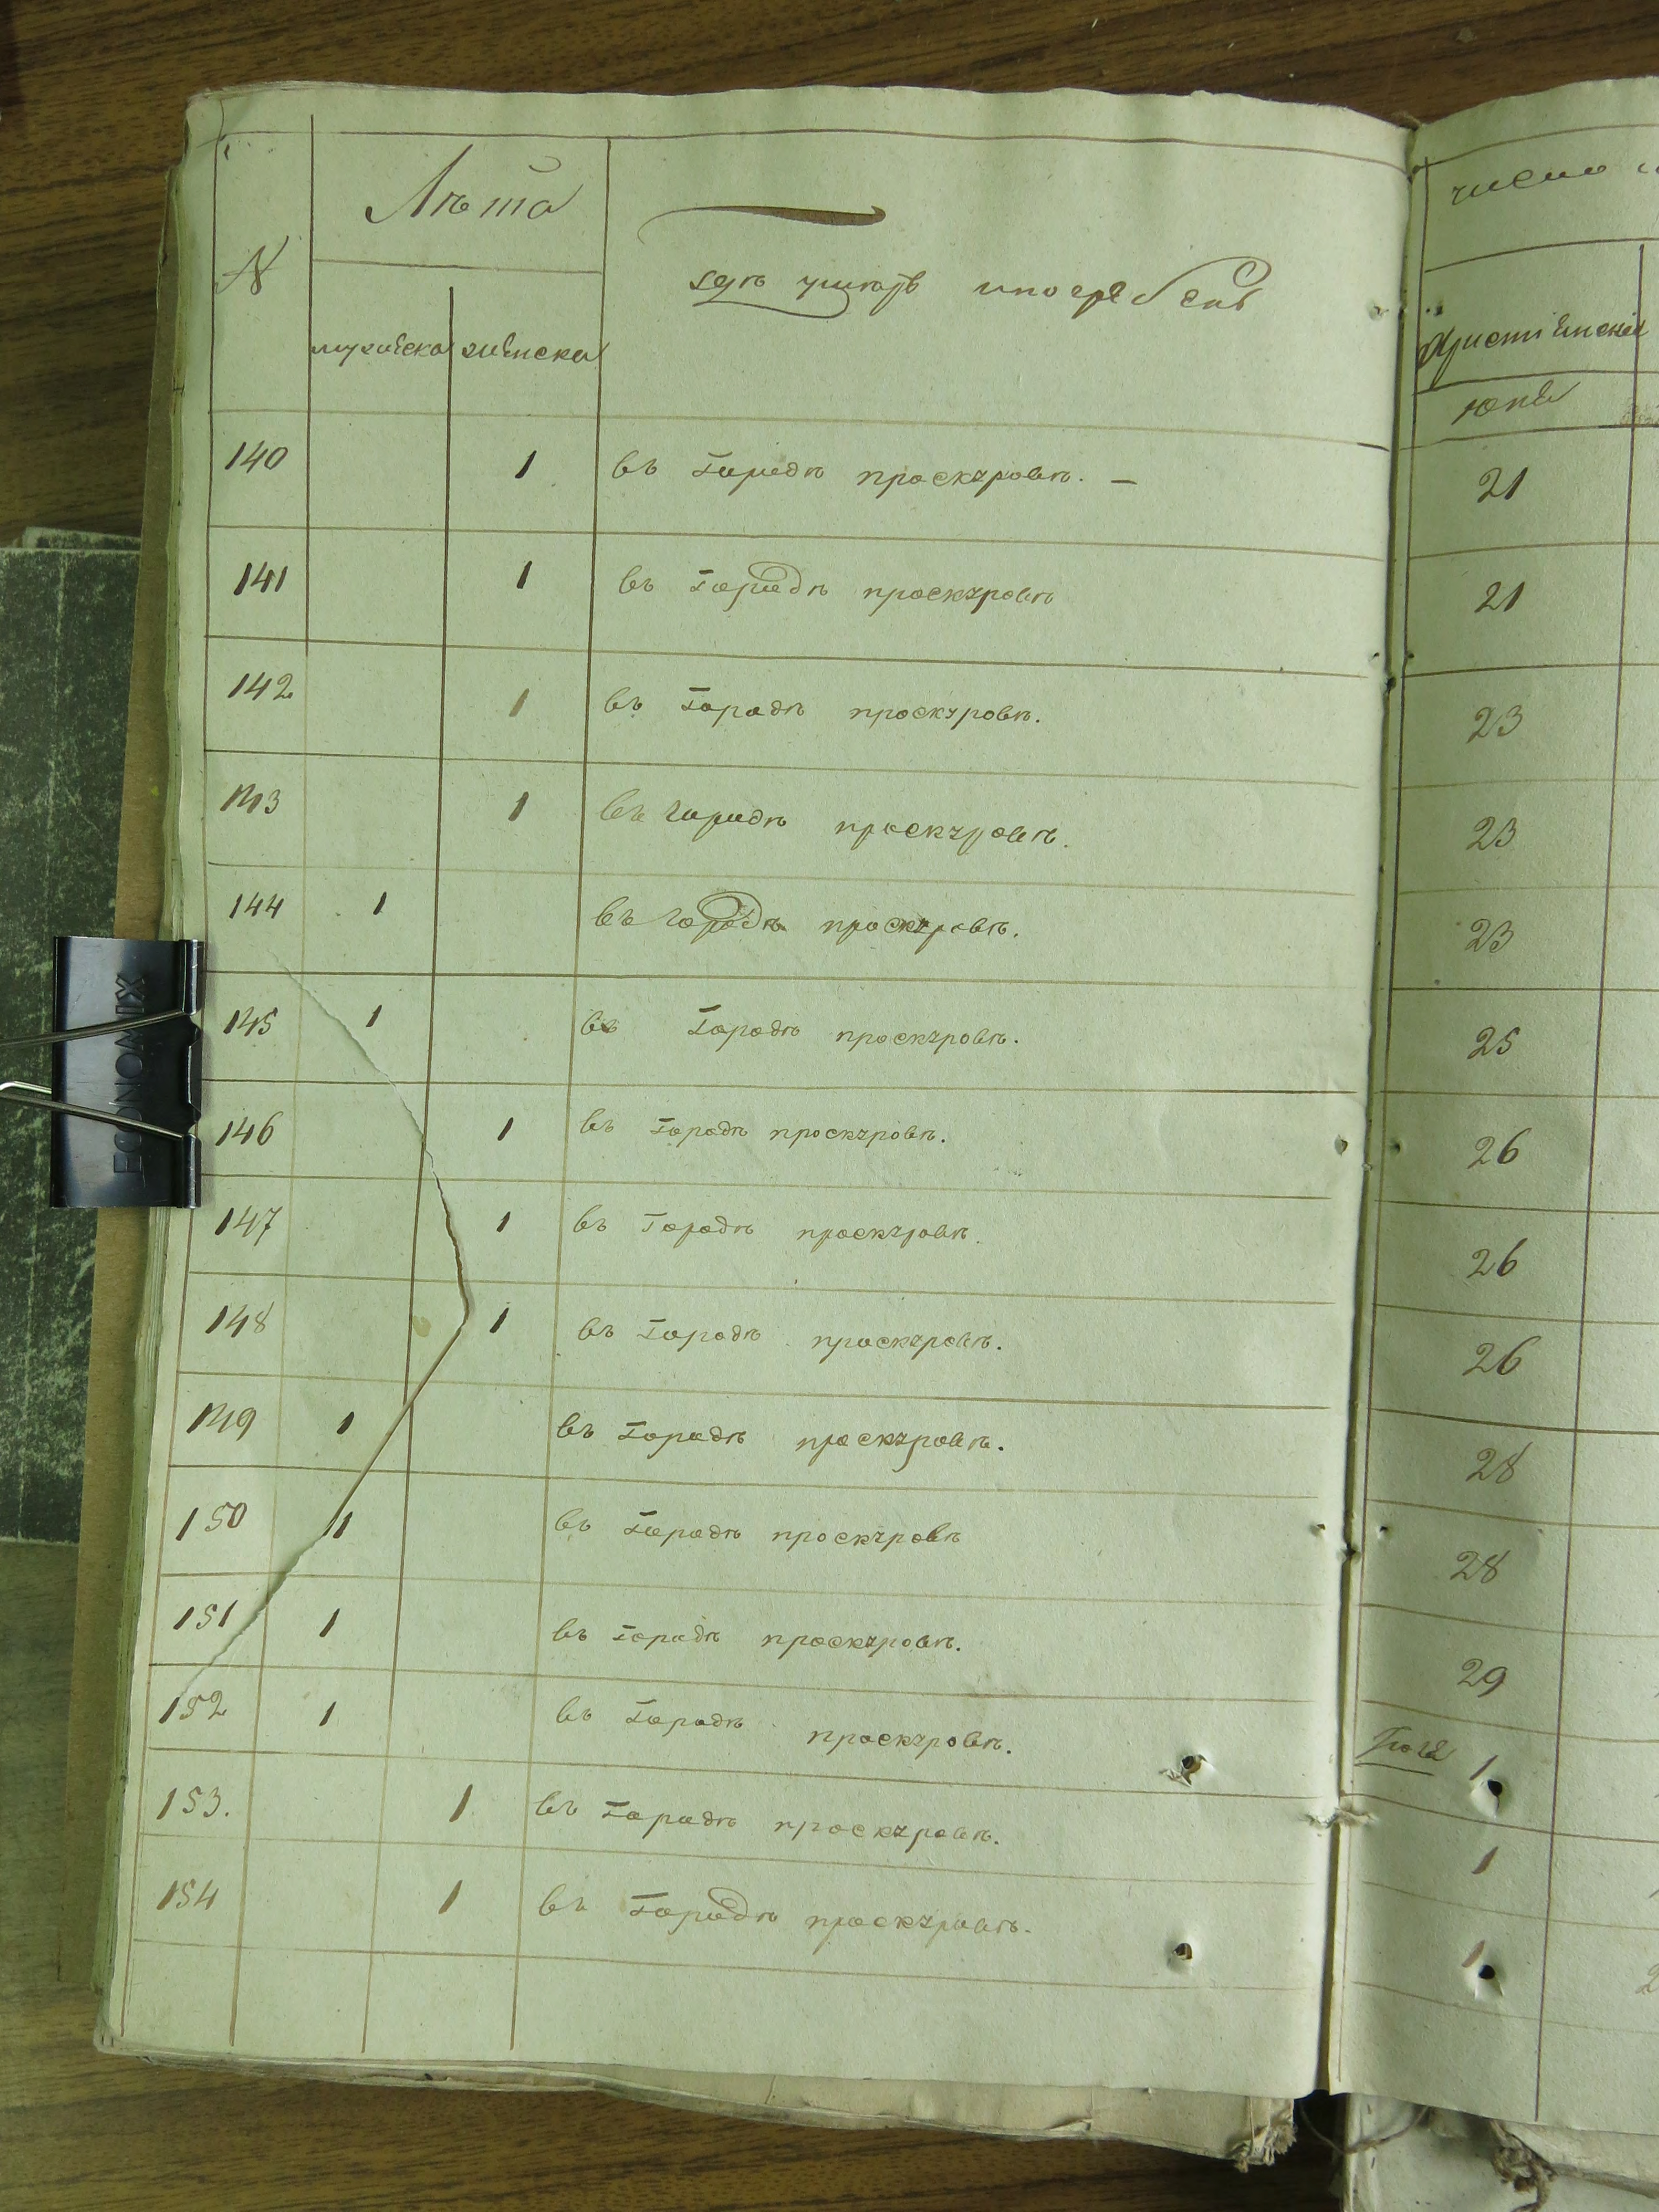 N
Лѣта
мужеска
женска
гдѣ умеръ и погребенъ
140 1 въ Городѣ проскуровѣ. —
141 1 въ Городѣ проскуровѣ
142 1 въ Городѣ проскуровѣ.
143 1 въ городѣ проскуровѣ.
144 1 въ городѣ проскуровѣ.
145 1 въ Городѣ проскуровѣ.
146 1 въ Городѣ проскуровѣ.
147 1 въ Городѣ проскуровѣ.
148 1 въ Городѣ проскуровѣ.
149 1 въ Городѣ проскуровѣ.
150 1 въ Городѣ проскуровѣ
151 1 въ Городѣ проскуровѣ.
152 1 въ Городѣ проскуровѣ.
153. 1 въ Городѣ проскуровѣ.
154 1 въ Городѣ проскуровѣ.
число
21
21
23
23
23
25
26
26
26
28
28
29
1
1
1
ECONOMIX